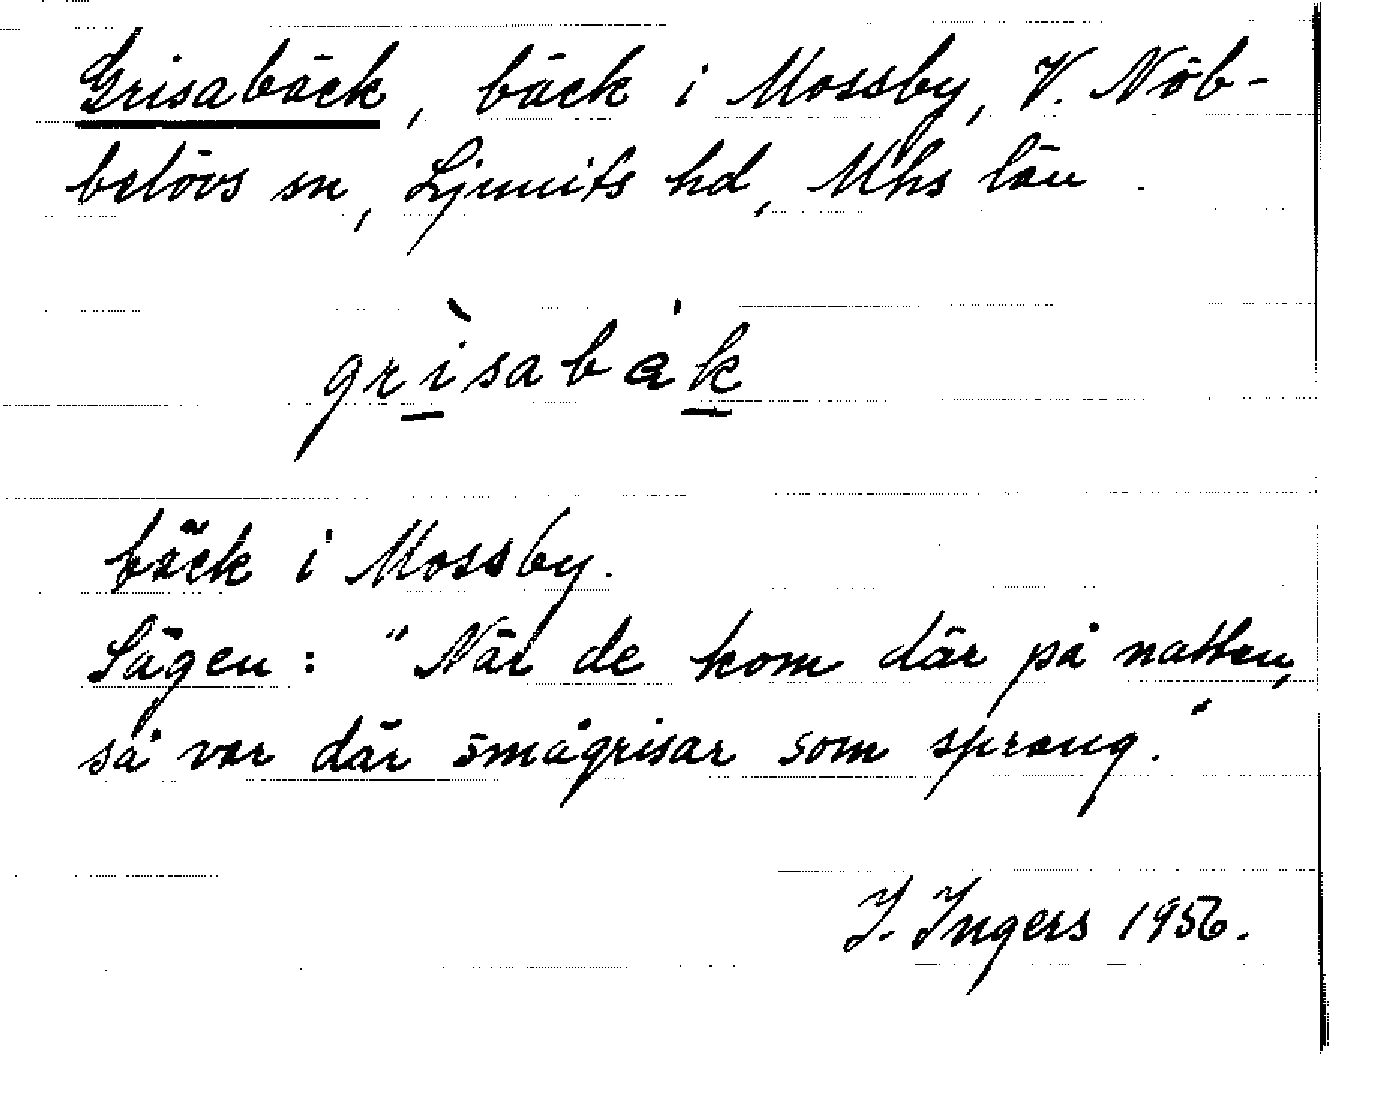 Grisabäck, bäck i Mossby, V. Nöb-
belövs sn, Ljunits hd, Mhs län.
grìsabák
bäck i Mossby.
Sägen: "När de kom där på natten,
så var där smågrisar som sprang."
I. Ingers 1956.